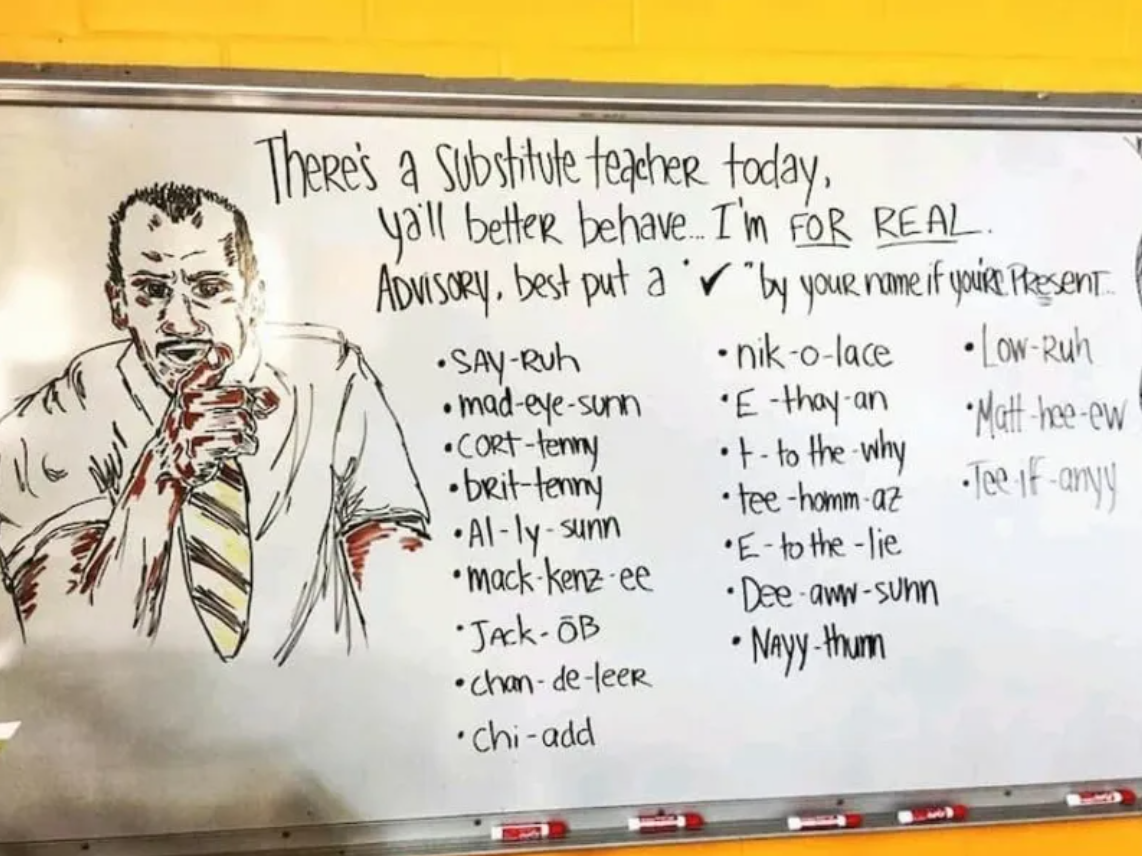 There's a substitute teacher today,
ya'll better behave... I'm FOR REAL.
ADVISORY, best put a "✓" by your name if you're Present...
• SAY-Ruh
• mad-eye-sunn
• CORT-tenny
• brit-tenny
• Al-ly-sunn
• mack-kenz-ee
• Jack-ōB
• chan-de-leer
• chi-add
• nik-o-lace
• E-thay-an
• t-to the-why
• tee-homm-az
• E-to the-lie
• Dee-aww-sunn
• Nayy-thunn
• Low-Ruh
• Matt-hee-ew
• Tee-iff-anyy